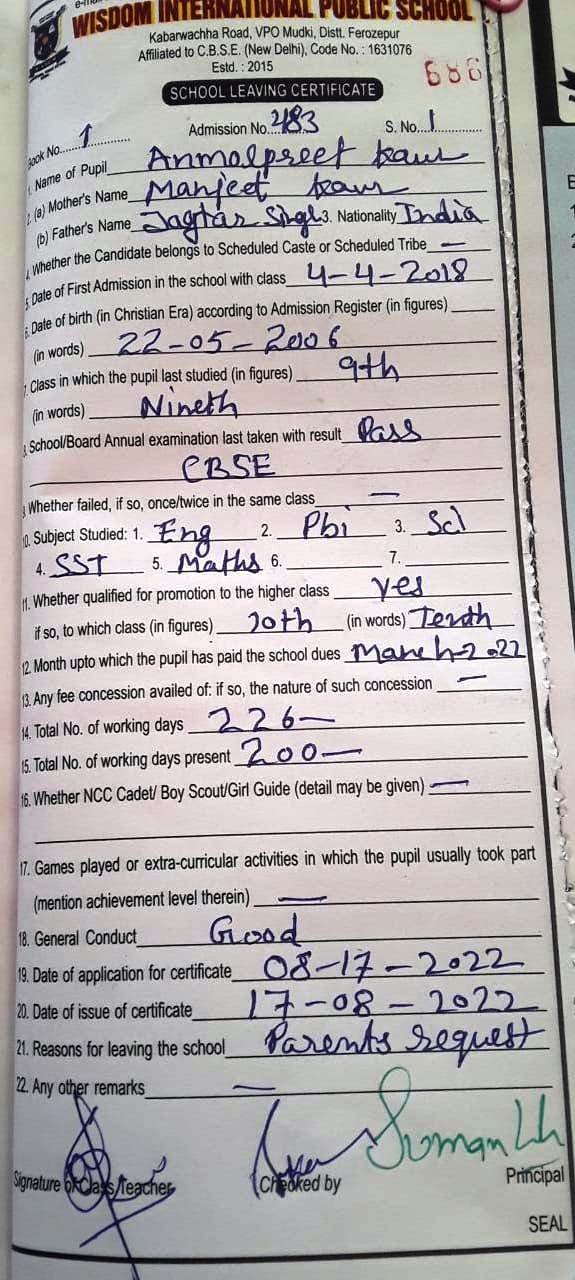 WISDOM INTERNATIONAL PUBLIC SCHOOL
Kabarwachha Road, VPO Mudki, Distt. Ferozepur
Affiliated to C.B.S.E. (New Delhi), Code No. : 1631076
Estd. : 2015
686
SCHOOL LEAVING CERTIFICATE
Book No. 1 Admission No. 483 S. No. 1
1. Name of Pupil Anmolpreet kaur
2. (a) Mother's Name Manjeet kaur
(b) Father's Name Jagtar Singh 3. Nationality India
4. Whether the Candidate belongs to Scheduled Caste or Scheduled Tribe —
5. Date of First Admission in the school with class 4-4-2018
6. Date of birth (in Christian Era) according to Admission Register (in figures)
(in words) 22-05-2006
7. Class in which the pupil last studied (in figures) 9th
(in words) Nineth
8. School/Board Annual examination last taken with result Pass
CBSE
9. Whether failed, if so, once/twice in the same class —
10. Subject Studied: 1. Eng 2. Pbi 3. Sci
4. SST 5. Maths 6. 7.
11. Whether qualified for promotion to the higher class yes
if so, to which class (in figures) 10th (in words) Tenth
12. Month upto which the pupil has paid the school dues March-2022
13. Any fee concession availed of: if so, the nature of such concession —
14. Total No. of working days 226—
15. Total No. of working days present 200—
16. Whether NCC Cadet/ Boy Scout/Girl Guide (detail may be given) —
17. Games played or extra-curricular activities in which the pupil usually took part
(mention achievement level therein) —
18. General Conduct Good
19. Date of application for certificate 08-17-2022
20. Date of issue of certificate 17-08-2022
21. Reasons for leaving the school Parents request
22. Any other remarks —
Suman
Signature of Class/Teacher Checked by Principal
SEAL